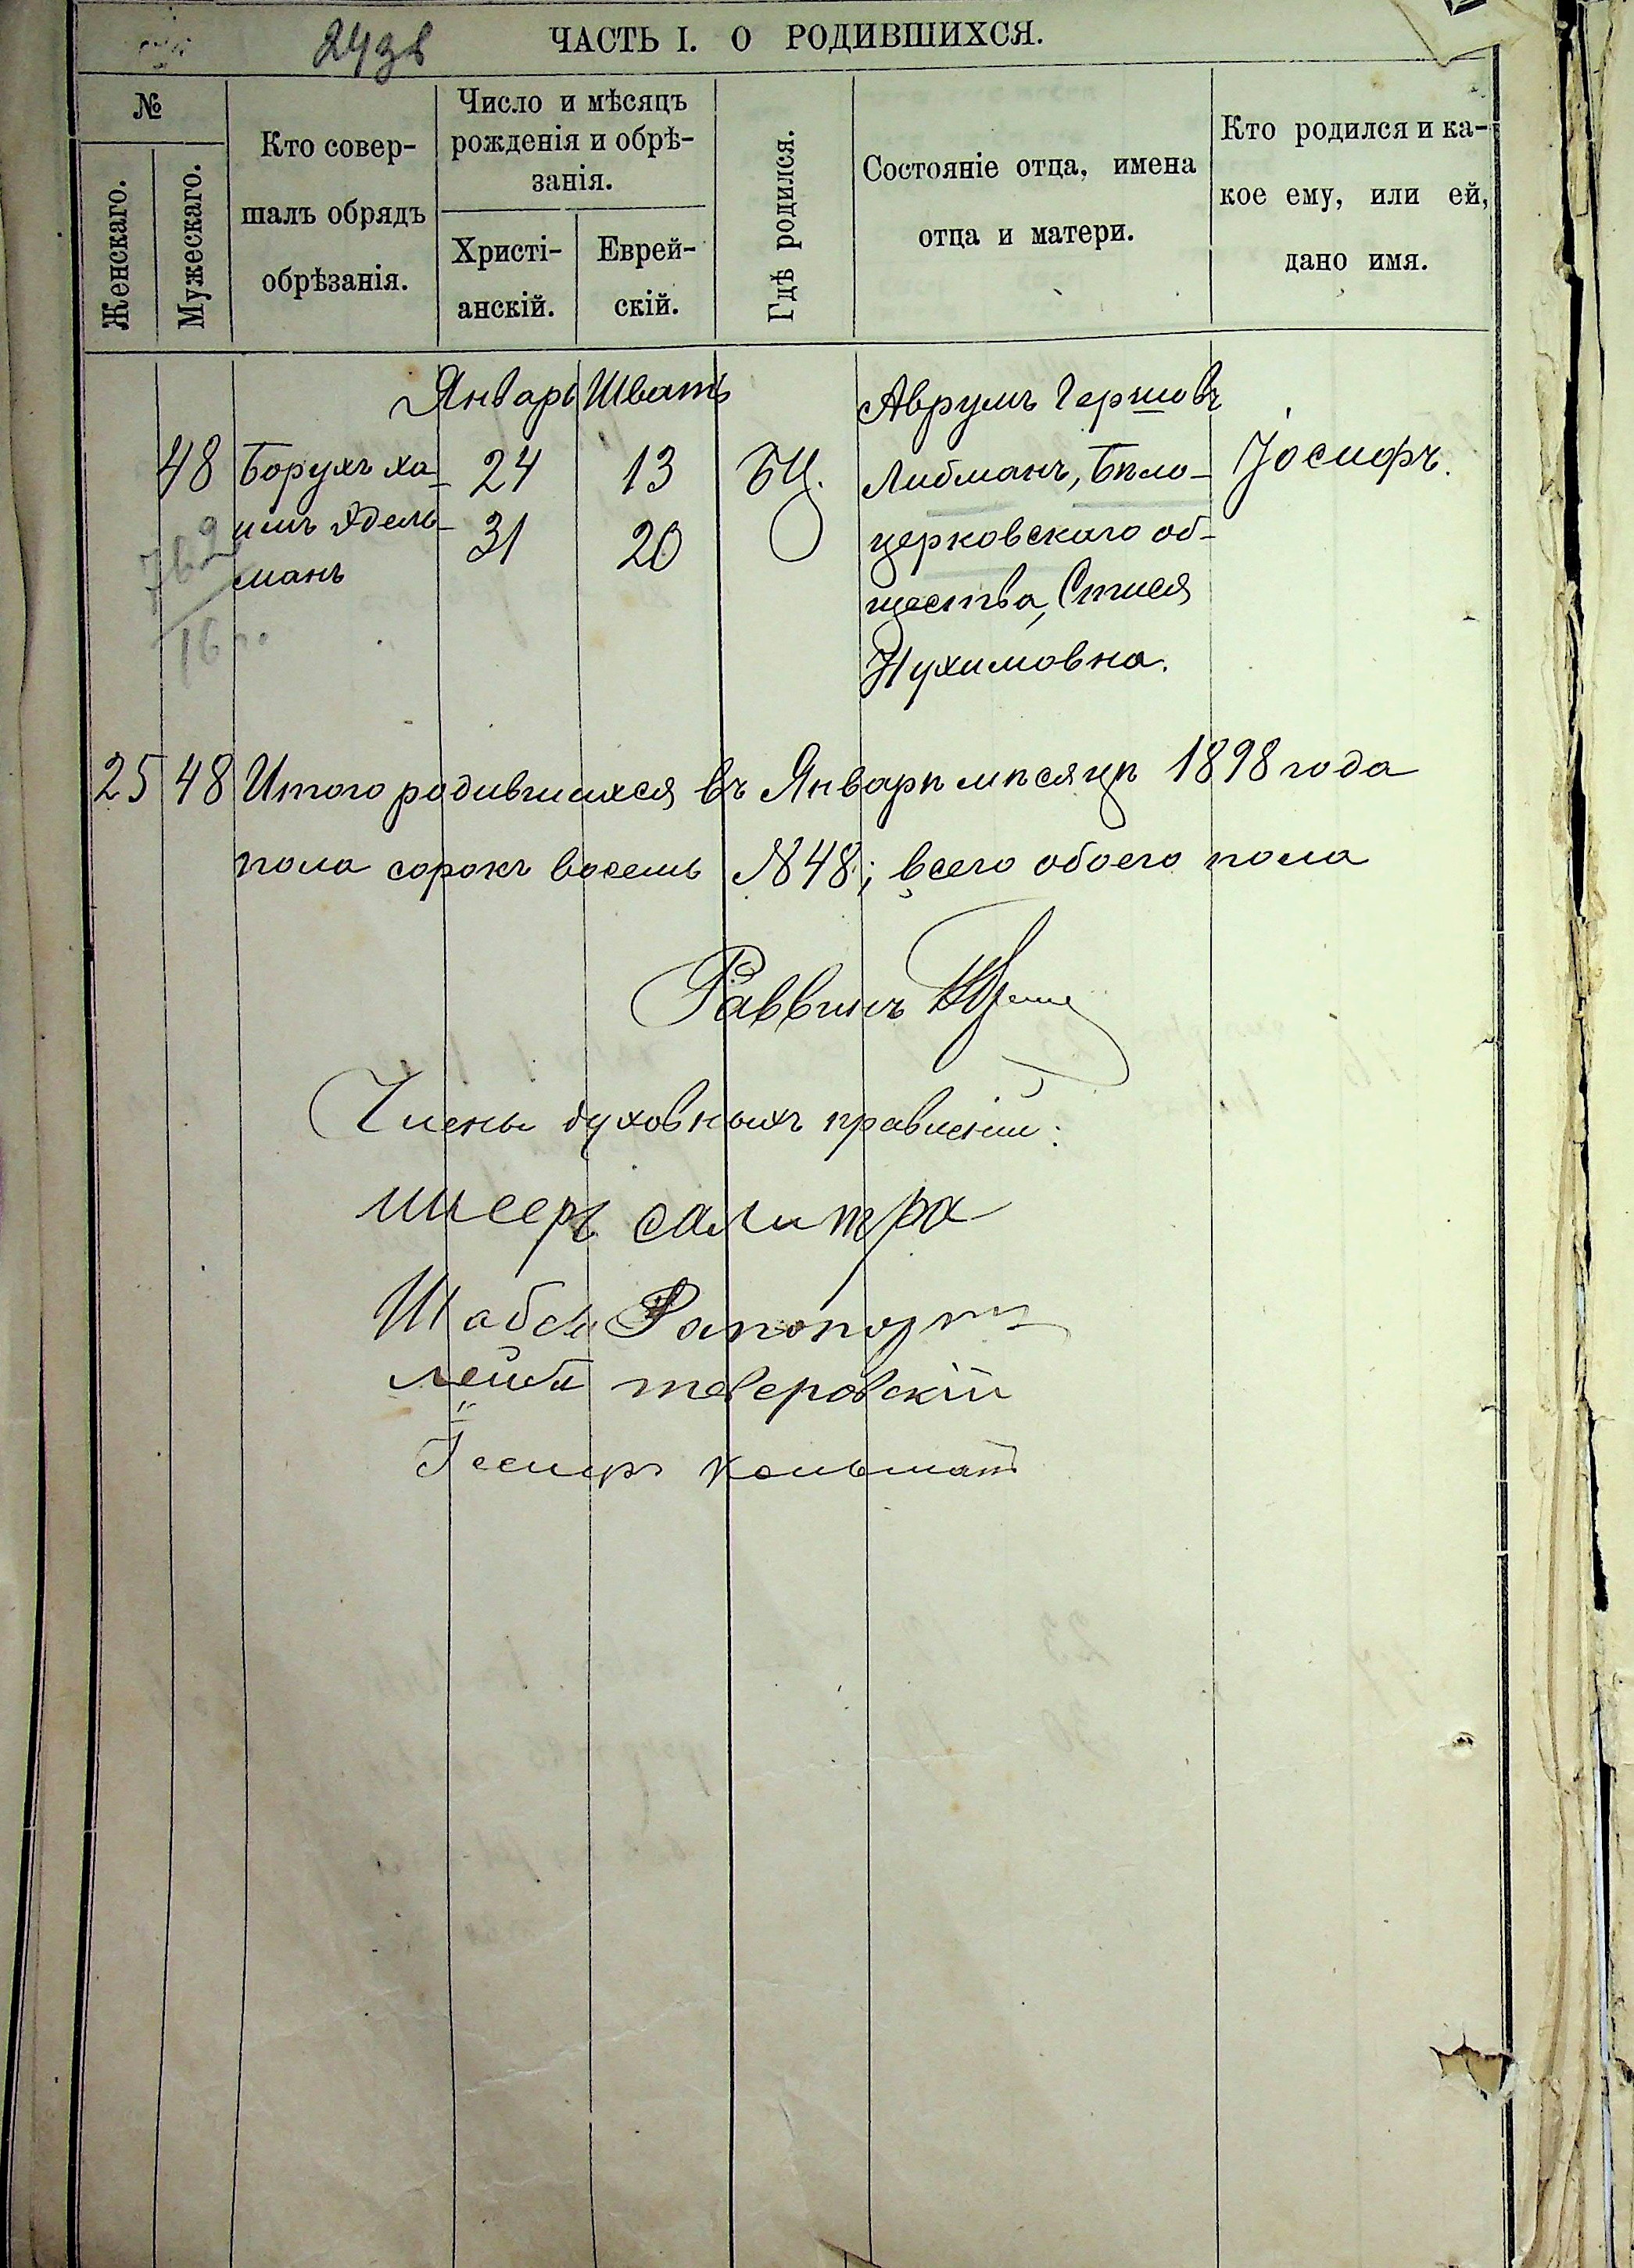 24зв
ЧАСТЬ I. О РОДИВШИХСЯ.
№
Женскаго.
Мужескаго.
Кто совер-
шалъ обрядъ
обрѣзанія.
Число и мѣсяцъ
рожденія и обрѣ-
занія.
Христі-
анскій.
Еврей-
скій.
Гдѣ родился.
Состояніе отца, имена
отца и матери.
Кто родился и ка-
кое ему, или ей,
дано имя.
Январь Шватъ
48
Борухъ Ха-
имъ Эдель-
манъ
24
31
13
20
БЦ.
Аврумъ Гершовъ
Либманъ, Бѣло-
церковскаго об-
щества,
Нухимовна.
Іосифъ.
16
25 48 Итого родившихся въ Январѣ мѣсяцѣ 1898 года
пола сорокъ восемь №48; всего обоего пола
Раввинъ
Члены духовныхъ правленій:
салитра
Шабси Рапопортъ
лейба тверовскій